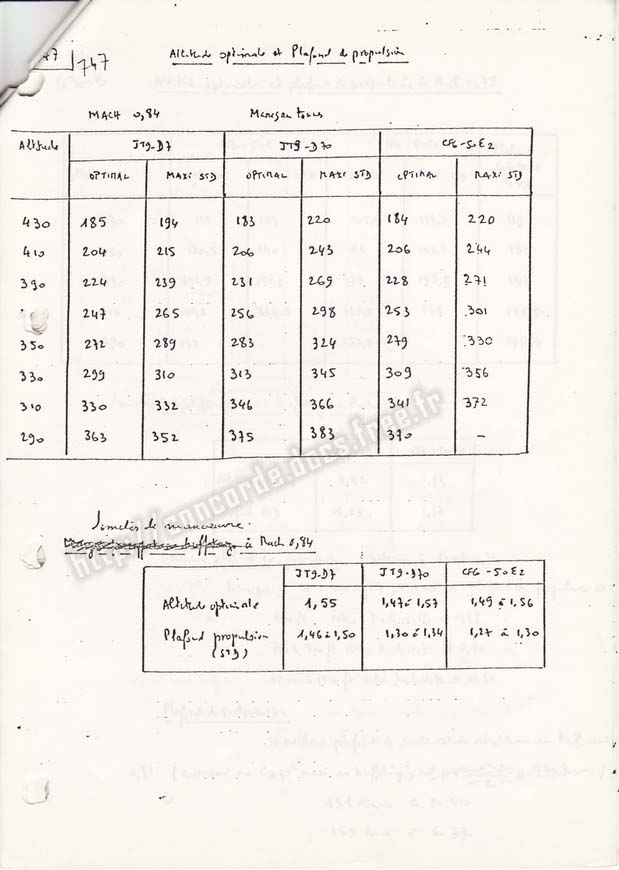 47
747
Altitude optimale et Plafond de propulsion
MACH 0,84 Masses en tonnes
Altitude JT9-D7 JT9-D70 CF6-50E2
OPTIMAL MAXI STD OPTIMAL MAXI STD OPTIMAL MAXI STD
430 185 194 183 220 184 220
410 204 215 206 243 206 244
390 224 239 231 269 228 271
247 265 256 298 253 301
350 272 289 283 324 279 330
330 299 310 313 345 309 356
310 330 332 346 366 341 372
290 363 352 375 383 370 -
Limites de manoeuvre
à Mach 0,84
JT9-D7 JT9-D70 CF6-50E2
Altitude optimale 1,55 1,47 à 1,57 1,49 à 1,56
Plafond propulsion 1,46 à 1,50 1,30 à 1,34 1,27 à 1,30
(STD)
http://conncorde.docs.free.fr